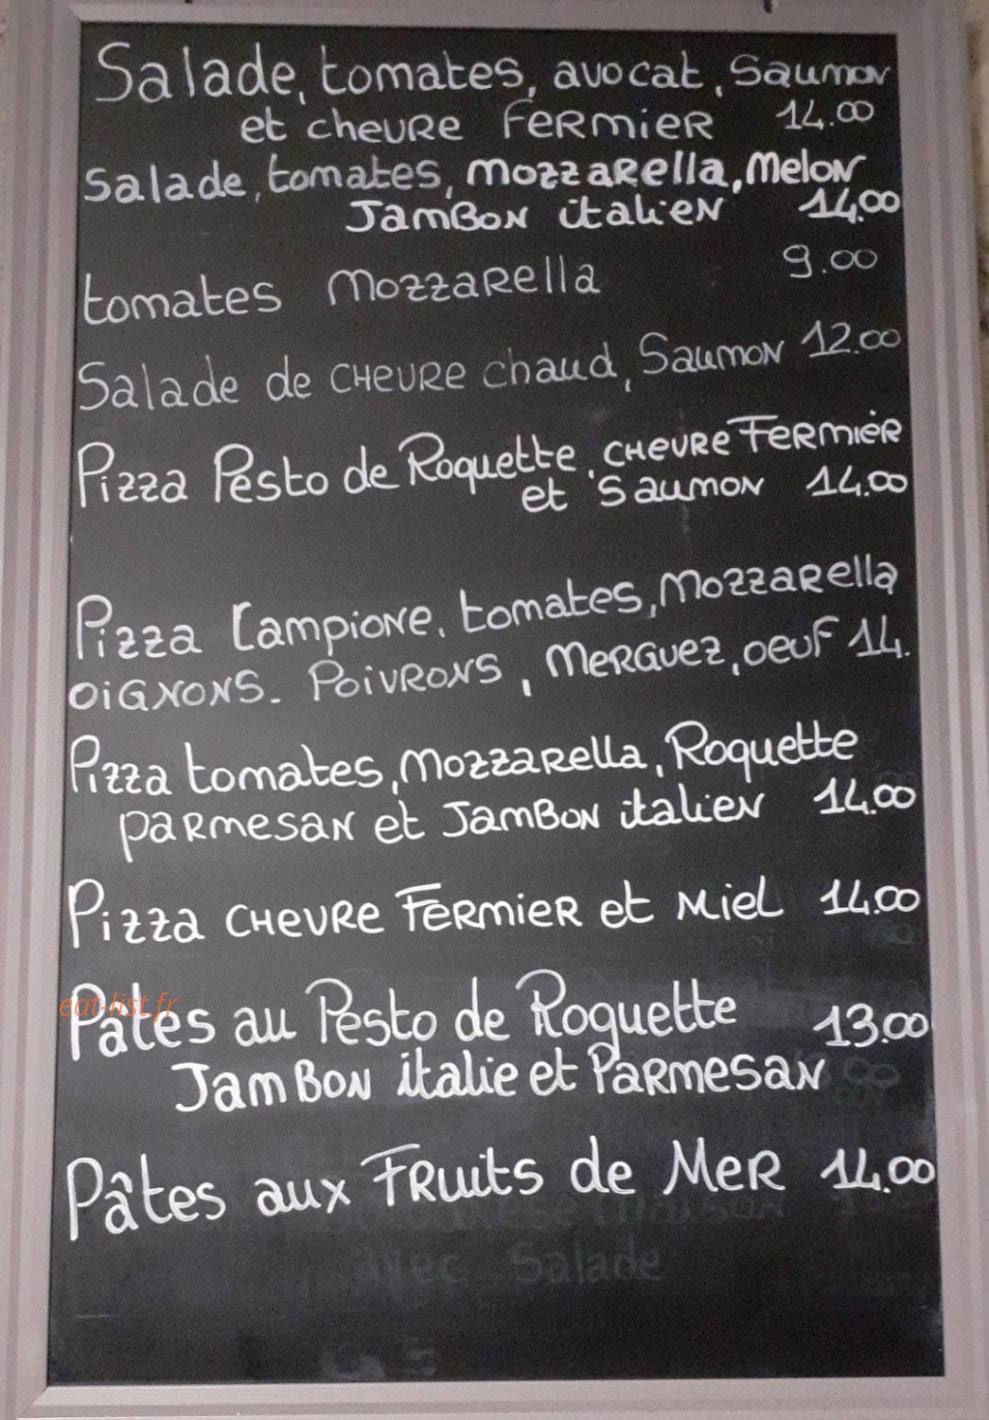 Salade, tomates, avocat, Saumon
et chevre Fermier 14.00
Salade, tomates, Mozzarella, Melon
Jambon italien 14.00
tomates Mozzarella 9.00
Salade de CHEVRE chaud, Saumon 12.00
Pizza Pesto de Roquette, CHEVRE Fermier
et Saumon 14.00
Pizza Campione, tomates, Mozzarella
oignons - Poivrons, Merguez, oeuf 14.
Pizza tomates, Mozzarella, Roquette
parmesan et Jambon italien 14.00
Pizza CHEVRE Fermier et Miel 14.00
eat-list.fr
Pâtes au Pesto de Roquette 13.00
Jambon italie et Parmesan
Pâtes aux Fruits de Mer 14.00
avec Salade